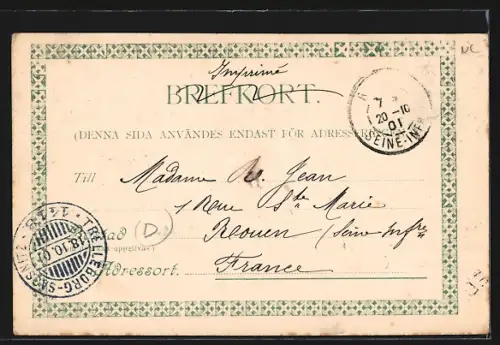 Imprimé
BREFKORT.
(DENNA SIDA ANVÄNDES ENDAST FÖR ADRESSEN)
7
20-10
01
SEINE-INFRE
Till Madame Jean
1 Rue Ste Marie
Rouen (Seine-Infre
(D.)
Adressort. France
TRELLEBORG-SASSNITZ
18.10.01